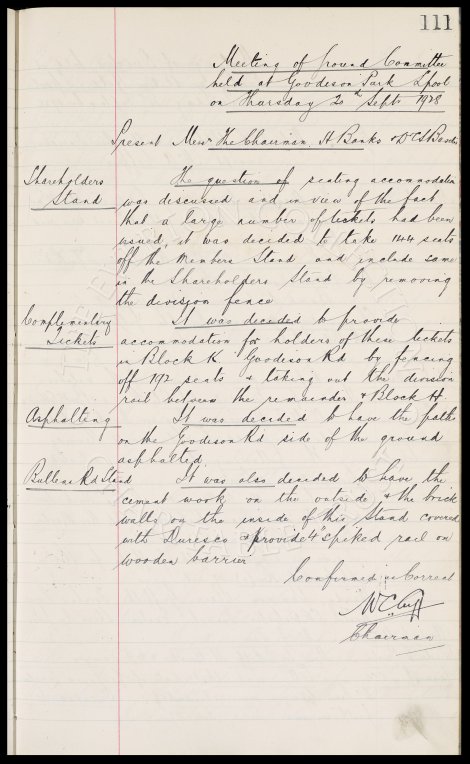 111
Meeting of Ground Committee
held at Goodison Park Lpool
on Thursday 20th Septr 1928
Present Messrs The Chairman, A Banks & Dr C S Baxter
Shareholders Stand
The question of seating accommodation
was discussed and in view of the fact
that a large number of tickets had been
issued, it was decided to take 1144 seats
off the Members Stand and include same
in the Shareholders Stand by removing
the division fence
Complimentary Tickets
It was decided to provide
accommodation for holders of these tickets
in Block K Goodison Rd by fencing
off 192 seats & taking out the division
rail between the remainder & Block H
Asphalting
It was decided to have the path
on the Goodison Rd side of the ground
asphalted
Bullens Rd Stand
It was also decided to have the
cement work on the outside & the brick
walls on the inside of this Stand covered
with Duresco & provide 4" spiked rail on
wooden barrier
Confirmed as Correct
W C Cuff
Chairman